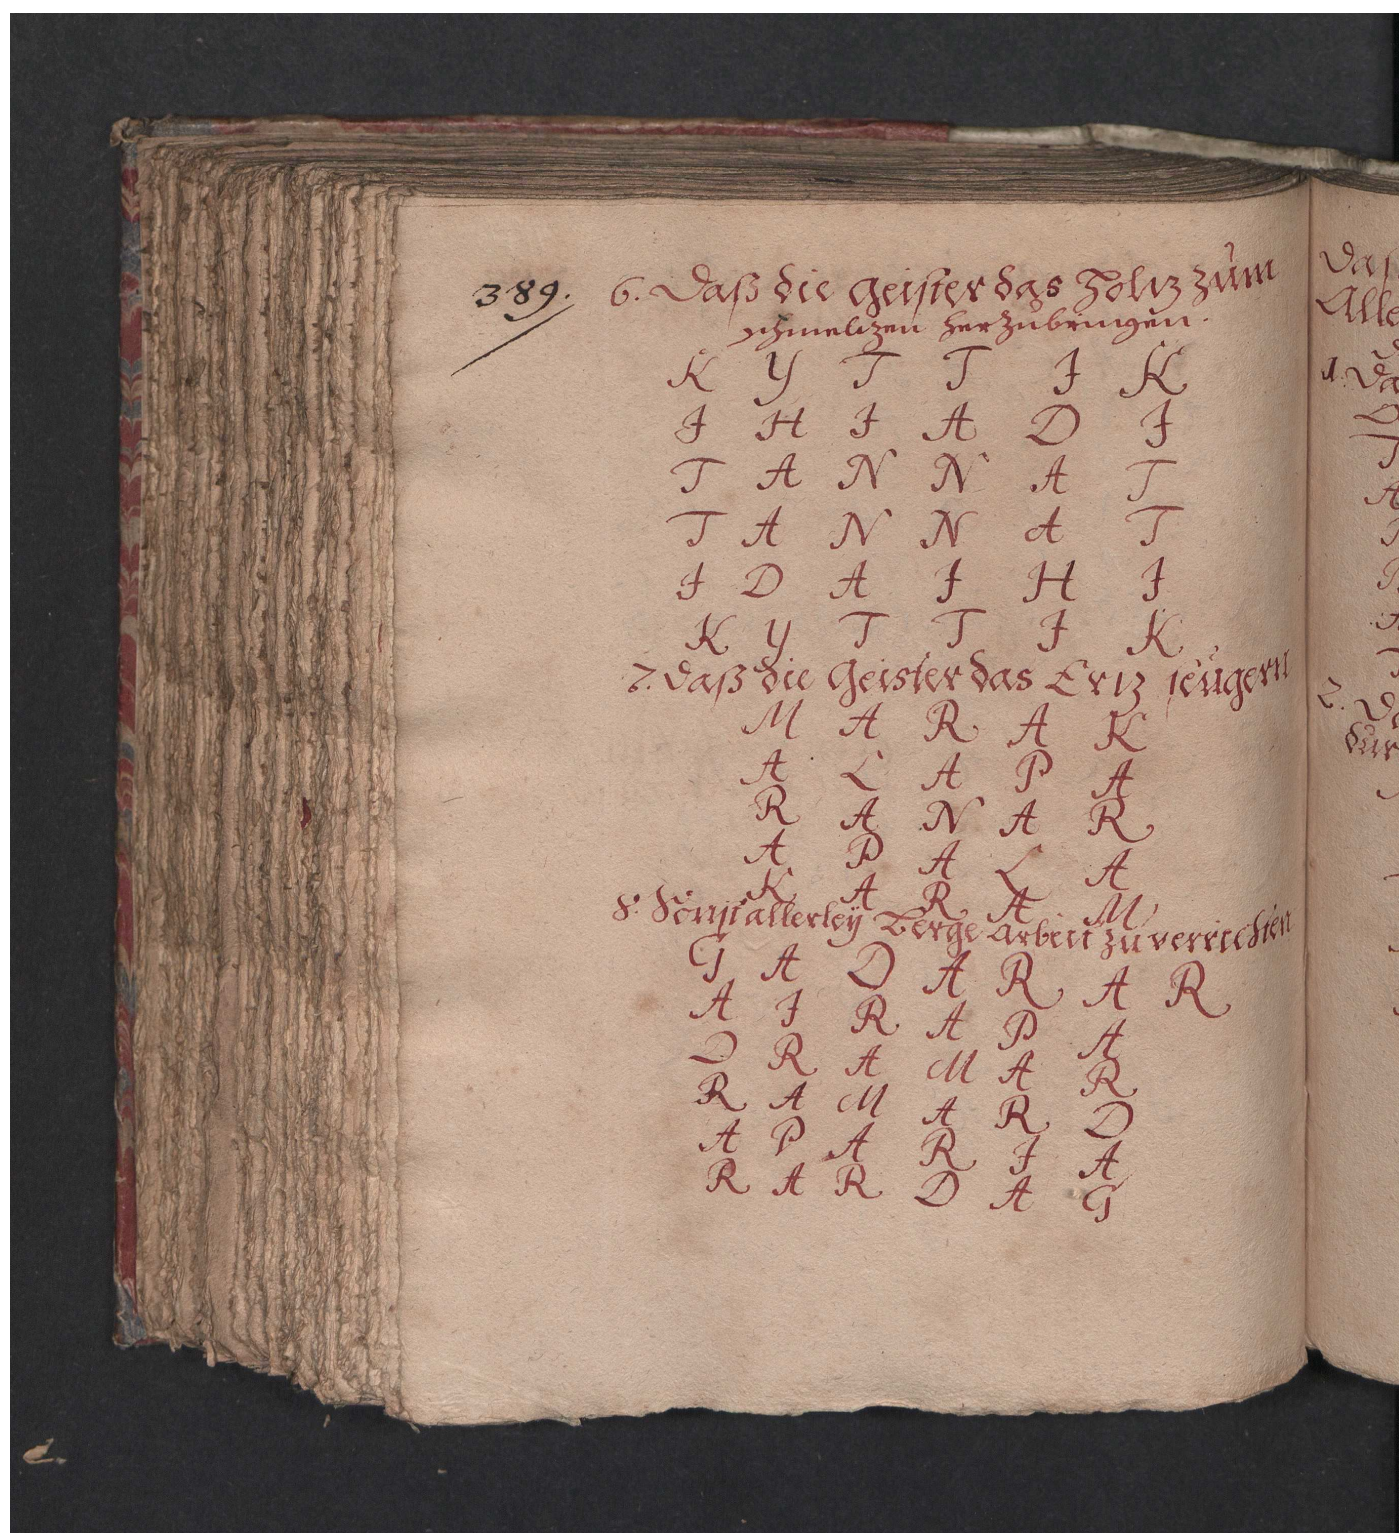 389. 6. Daß die Geister das Holtz zŭm
schmeltzen herzŭbringen.
K Y T T I K
I H I A D I
T A N N A T
T A N N A T
I D A I H I
K Y T T I K
7. Daß die Geister das Ertz seŭgern
M A R A K
A L A P A
R A N A R
A P A L A
K A R A M
8. Sonst allerleÿ Berge Arbeit zŭ verrichten
G A D A R A R
A I R A P A
D R A M A R
R A M A R D
A P A R I A
R A R D A G
Daß
Alle
1. Da
T
A
2. Da
dŭr